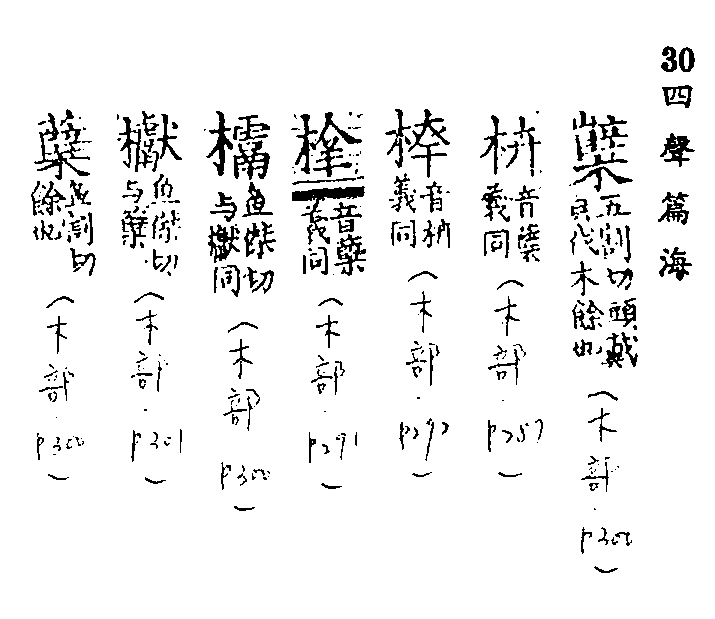 30 四聲篇海
五割切頭戴
伐木餘也
（木部．p300）
音蘖
義同
（木部．p287）
音枿
義同
（木部．p292）
音蘖
義同
（木部．p291）
魚傑切
与㰕同
（木部 p300）
㰕
魚傑切
与蘖
（木部．p301）
蘖
五割切
餘也
（木部．p300）